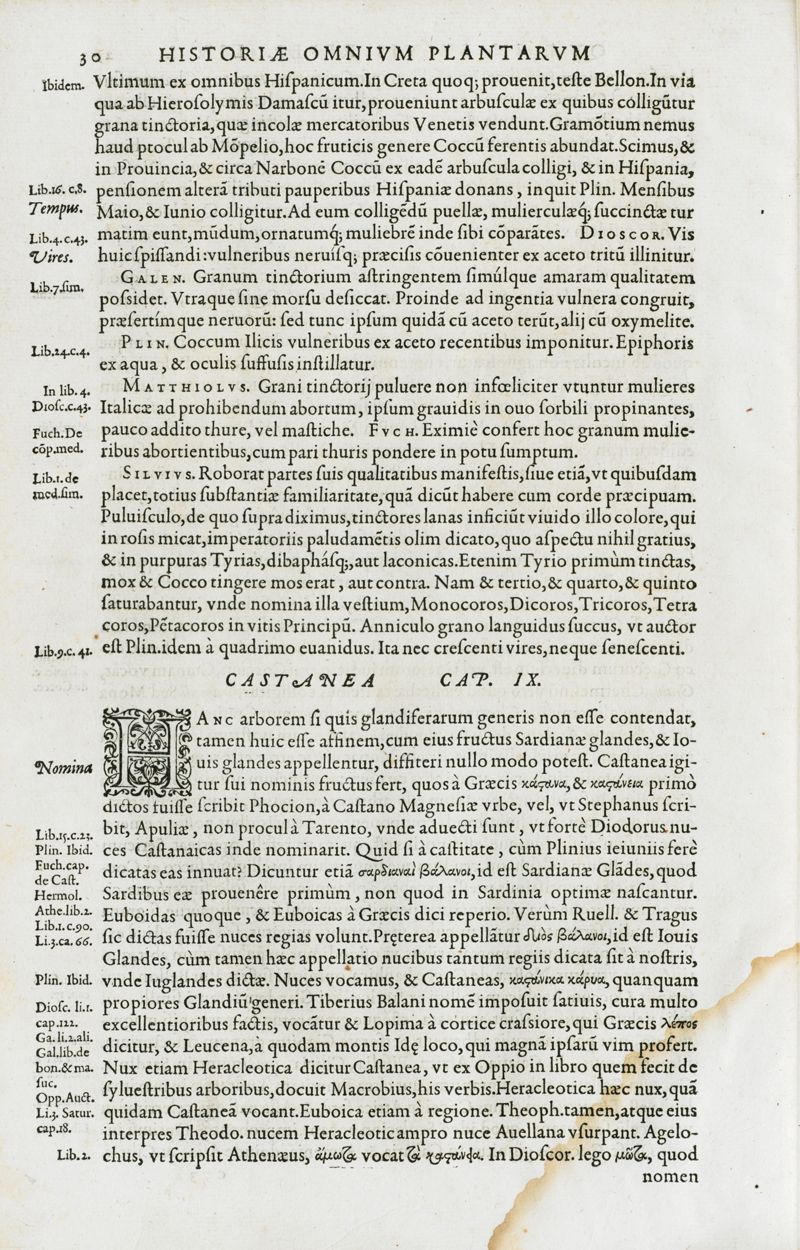 30 HISTORIÆ OMNIVM PLANTARVM
Ibidem. Vltimum ex omnibus Hiſpanicum.In Creta quoq; prouenit,teſte Bellon.In via
qua ab Hieroſolymis Damaſcū itur,proueniunt arbuſculæ ex quibus colligūtur
grana tinctoria,quæ incolæ mercatoribus Venetis vendunt.Gramōtium nemus
haud procul ab Mōpelio,hoc fruticis genere Coccū ferentis abundat.Scimus,&
in Prouincia,& circa Narbonē Coccū ex eadē arbuſcula colligi, & in Hiſpania,
Lib.16. c.8. penſionem alterā tributi pauperibus Hiſpaniæ donans, inquit Plin. Menſibus
Tempus. Maio,& Iunio colligitur.Ad eum colligēdū puellæ, mulierculæq́; ſuccinctæ tur
Lib.4.c.43. matim eunt,mūdum,ornatumq́; muliebrē inde ſibi cōparātes. DIOSCOR. Vis
Vires. huic ſpiſſandi:vulneribus neruiſq; præciſis cōuenienter ex aceto tritū illinitur.
Lib.7.ſim. GALEN. Granum tinctorium aſtringentem ſimúlque amaram qualitatem
poſsidet. Vtraque ſine morſu deſiccat. Proinde ad ingentia vulnera congruit,
præſertímque neruorū: ſed tunc ipſum quidā cū aceto terūt,alij cū oxymelite.
Lib.24.c.4. PLIN. Coccum Ilicis vulneribus ex aceto recentibus imponitur. Epiphoris
ex aqua, & oculis ſuffuſis inſtillatur.
In lib. 4. MATTHIOLVS. Grani tinctorij puluere non infœliciter vtuntur mulieres
Dioſc.c.43. Italicæ ad prohibendum abortum, ipſum grauidis in ouo ſorbili propinantes,
Fuch.De pauco addito thure, vel maſtiche. FVCH. Eximiè confert hoc granum mulie-
cōp.med. ribus abortientibus,cum pari thuris pondere in potu ſumptum.
Lib.1.de SILVIVS. Roborat partes ſuis qualitatibus manifeſtis,ſiue etiā,vt quibuſdam
med.ſim. placet,totius ſubſtantiæ familiaritate,quā dicūt habere cum corde præcipuam.
Puluiſculo,de quo ſupra diximus,tinctores lanas inficiūt viuido illo colore,qui
in roſis micat,imperatoriis paludamētis olim dicato,quo aſpectu nihil gratius,
& in purpuras Tyrias,dibapháſq;,aut laconicas.Etenim Tyrio primùm tinctas,
mox & Cocco tingere mos erat, aut contra. Nam & tertio,& quarto,& quinto
ſaturabantur, vnde nomina illa veſtium,Monocoros,Dicoros,Tricoros,Tetra
coros,Pētacoros in vitis Principū. Anniculo grano languidus ſuccus, vt auctor
Lib.9.c. 41. eſt Plin.idem à quadrimo euanidus. Ita nec creſcenti vires,neque ſeneſcenti.
CASTANEA CAP. IX.
HANC arborem ſi quis glandiferarum generis non eſſe contendat,
tamen huic eſſe affinem,cum eius fructus Sardianæ glandes,& Io-
Nomina uis glandes appellentur, diffiteri nullo modo poteſt. Caſtanea igi-
tur ſui nominis fructus fert, quos à Græcis κάϛανα,& καϛάνεια primò
dictos fuiſſe ſcribit Phocion,à Caſtano Magneſiæ vrbe, vel, vt Stephanus ſcri-
Lib.15.c.23. bit, Apuliæ, non procul à Tarento, vnde aduecti ſunt, vt fortè Diodorus nu-
Plin. Ibid. ces Caſtanaicas inde nominarit. Quid ſi à caſtitate, cùm Plinius ieiuniis ferè
Fuch.cap. de Caſt. dicatas eas innuat? Dicuntur etiā σαρδιαναὶ βάλανοι,id eſt Sardianæ Glādes,quod
Hermol. Sardibus eæ prouenêre primùm, non quod in Sardinia optimæ naſcantur.
Athe.lib.2. Euboidas quoque, & Euboicas à Græcis dici reperio. Verùm Ruell. & Tragus
Lib.1.c.90. Li.3.ca.66. ſic dictas fuiſſe nuces regias volunt.Pręterea appellātur διὸς βάλανοι,id eſt Iouis
Glandes, cùm tamen hæc appellatio nucibus tantum regiis dicata ſit à noſtris,
Plin. Ibid. vnde Iuglandes dictæ. Nuces vocamus, & Caſtaneas, καϛάνικα κάρυα, quanquam
Dioſc. li.1. propiores Glandiū generi. Tiberius Balani nomē impoſuit ſatiuis, cura multo
cap.122. excellentioribus factis, vocātur & Lopima à cortice craſsiore,qui Græcis λέπος
Ga.li.2.ali. Gal.lib.de dicitur, & Leucena,à quodam montis Idę loco,qui magnā ipſarū vim profert.
bon.& ma. Nux etiam Heracleotica dicitur Caſtanea, vt ex Oppio in libro quem fecit de
ſuc. Opp.Auct. ſylueſtribus arboribus,docuit Macrobius,his verbis.Heracleotica hæc nux,quā
Li.3. Satur. quidam Caſtaneā vocant.Euboica etiam à regione. Theoph.tamen,atque eius
cap.18. interpres Theodo. nucem Heracleoticam pro nuce Auellana vſurpant. Agelo-
Lib.2. chus, vt ſcripſit Athenæus, ἄμωτα vocat τὰ καϛάνεια. In Dioſcor. lego μῶτα, quod
nomen